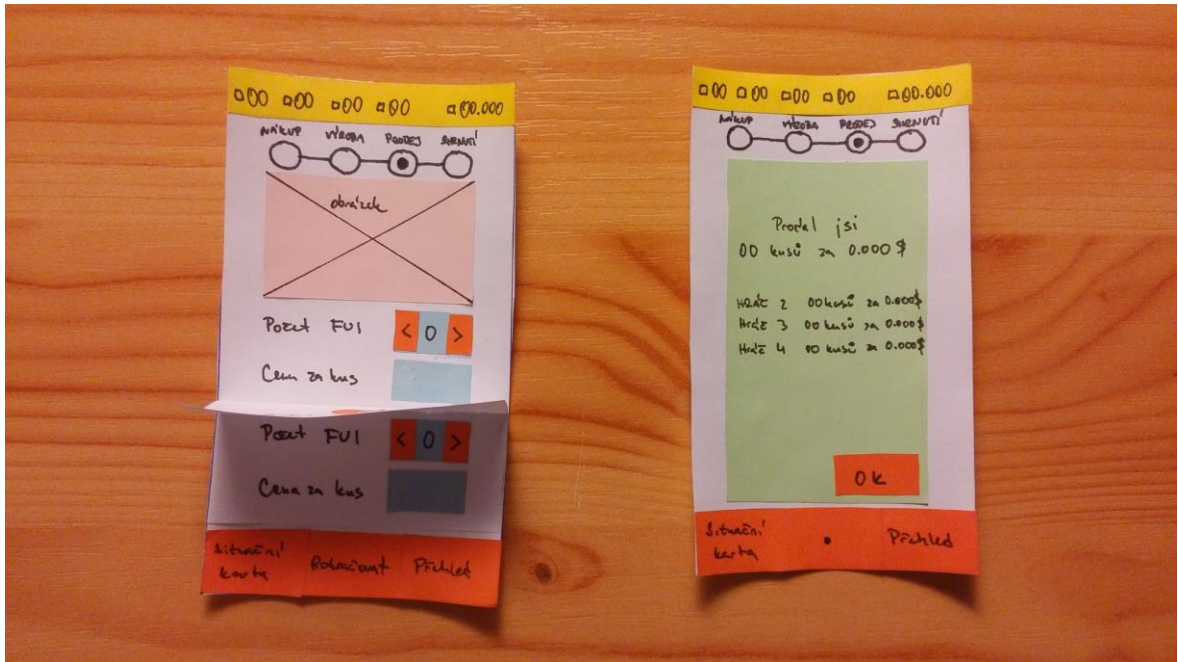 00 00 00 00 00.000
NÁKUP VÝROBA PRODEJ SHRNUTÍ
obrázek
Počet FVI < 0 >
Cena za kus
Počet FVI < 0 >
Cena za kus
Situační karta
Pokračovat
Přehled
00 00 00 00 00.000
NÁKUP VÝROBA PRODEJ SHRNUTÍ
Prodal jsi
00 kusů za 0.000 $
HRÁČ 2 00 kusů za 0.000$
Hráč 3 00 kusů za 0.000$
Hráč 4 00 kusů za 0.000$
OK
Situační karta
Přehled